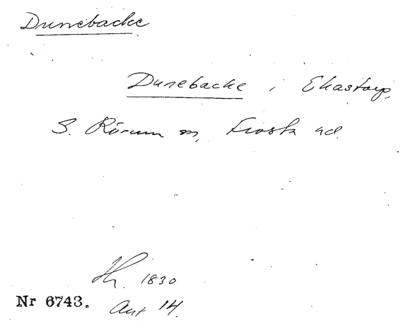 Dunebacke
Dunebacke i Ekastorp,
S. Rörum sn, Frosta hd.
1830
Nr 6743. Aut 14.